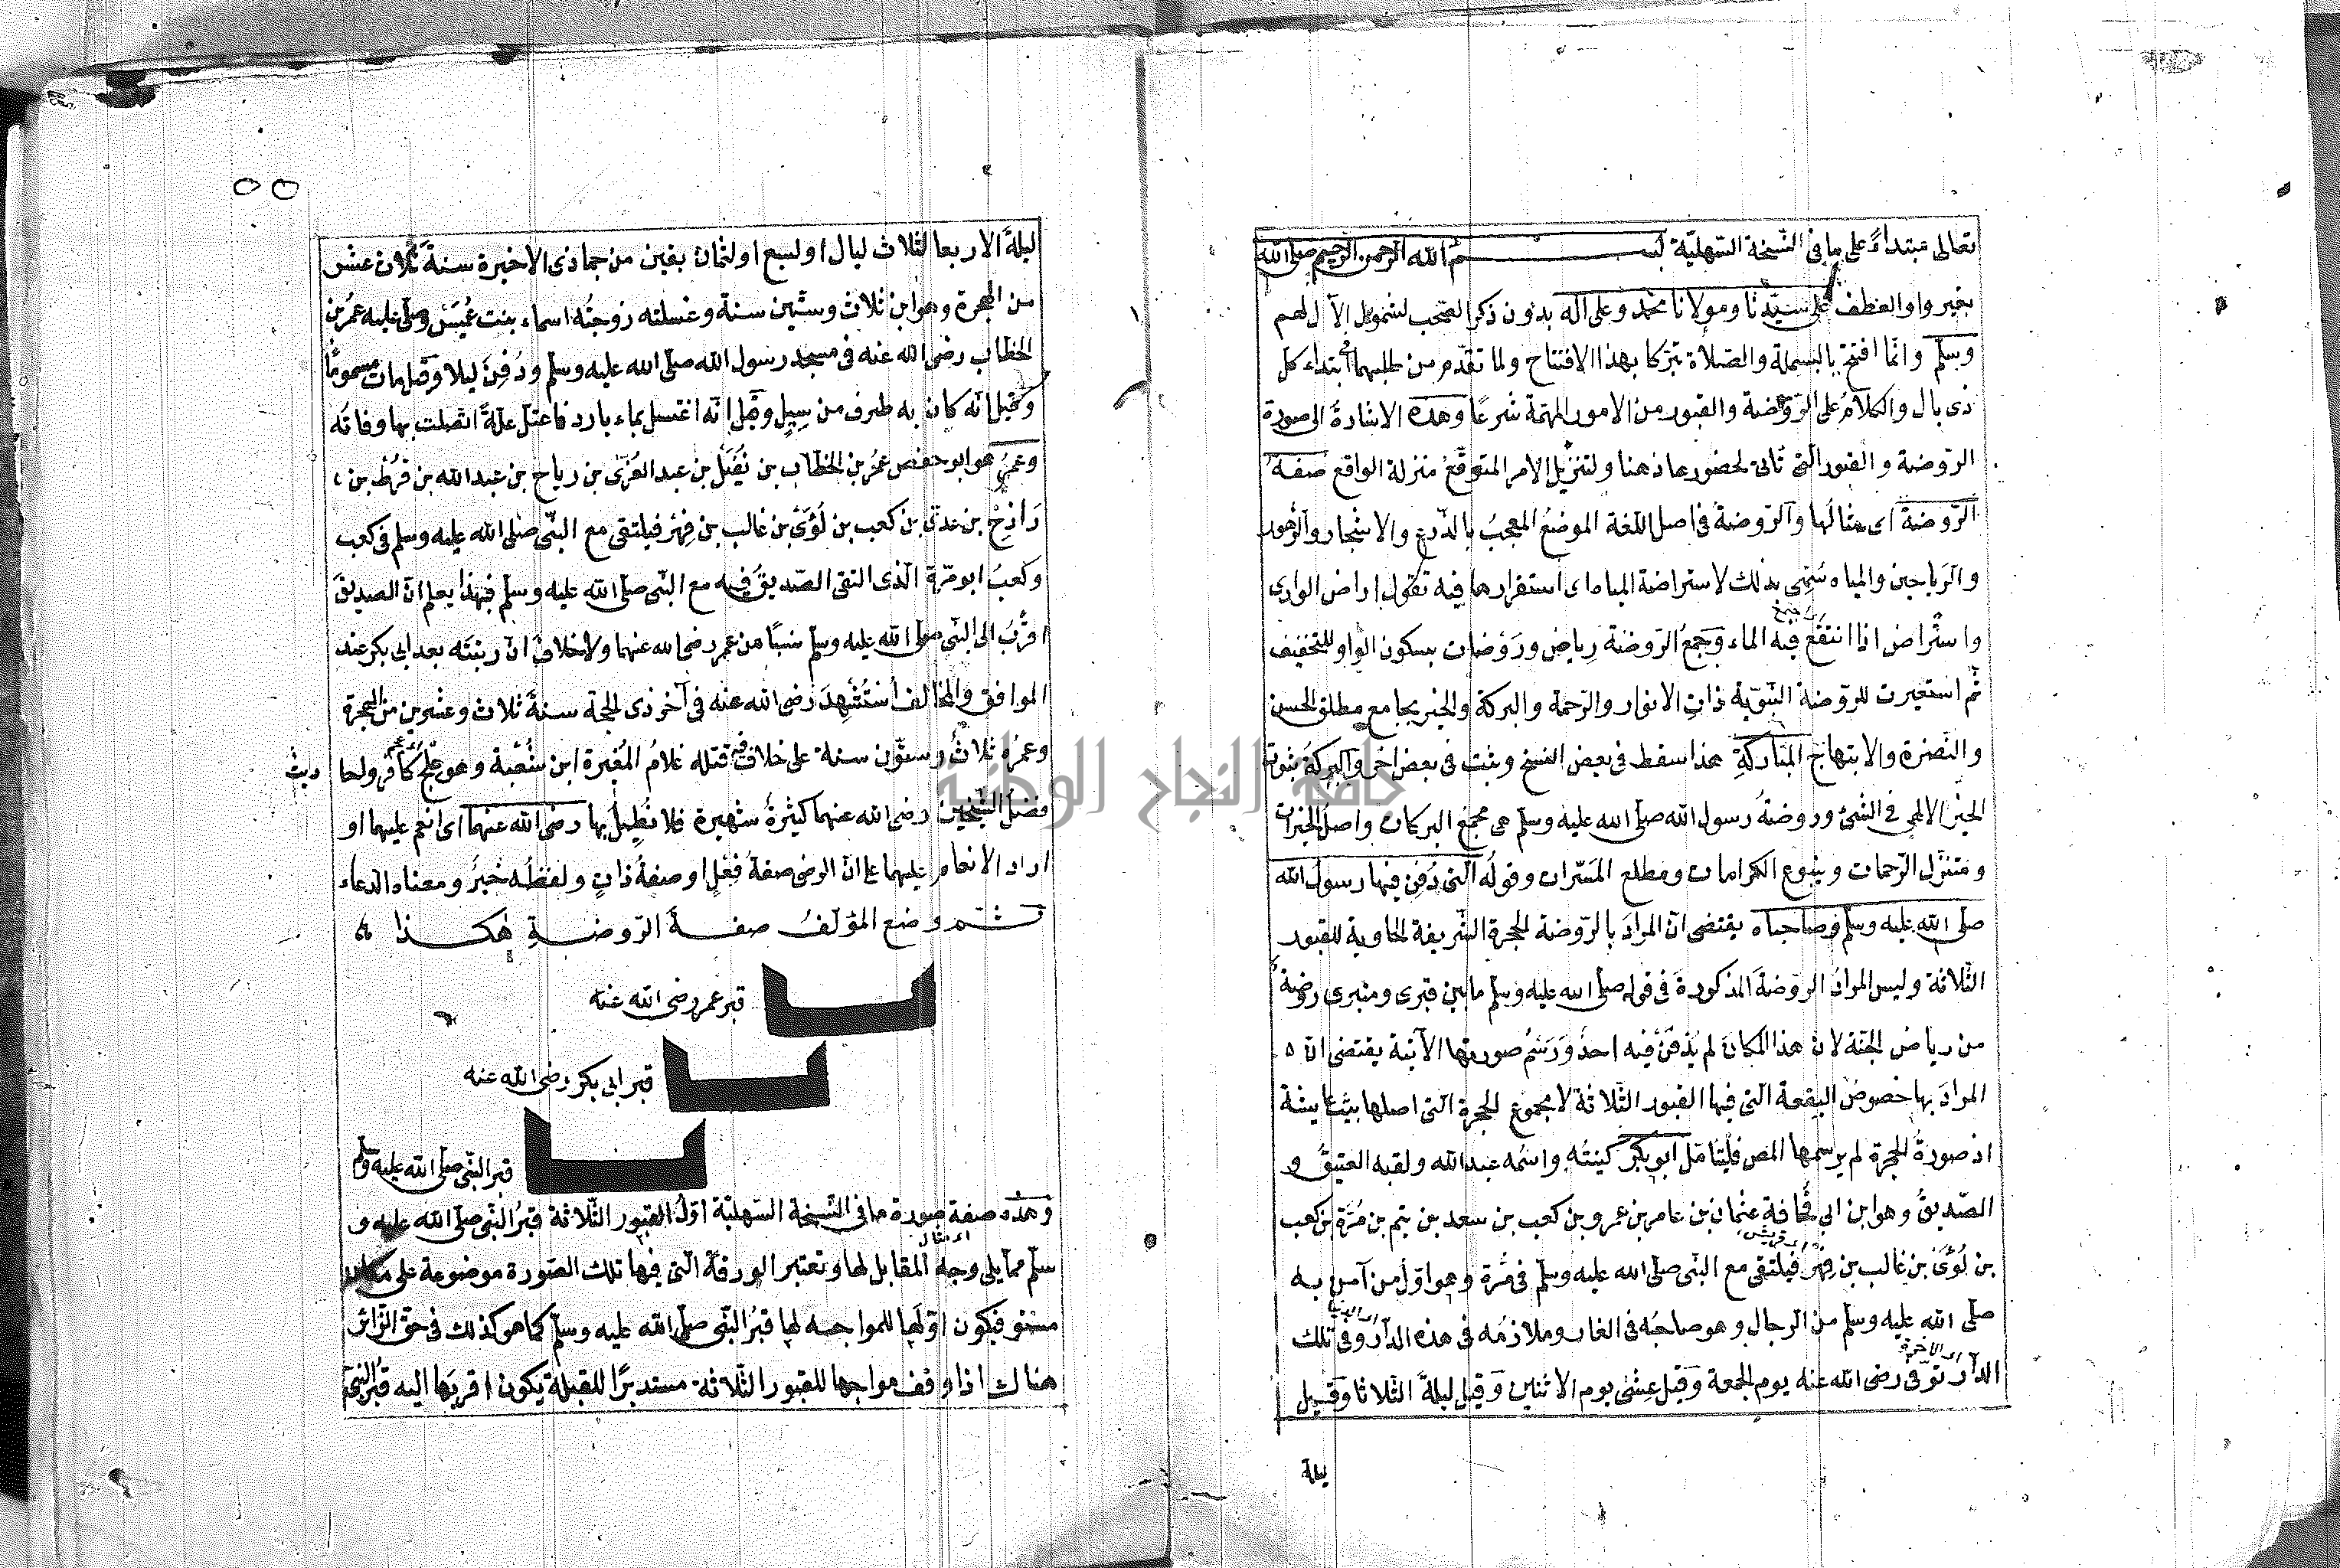 تعالى مبتداءً على ما فى النّسخة السّهليّة بسم الله الرّحمن الرّحيم صلى الله
بغير واو العطف على سيّدنا ومولانا محمّد وعلى اله بدون ذكر الصّحب لشمول الآل لهم
وسلّم وانّما افتتح بالبسملة والصّلاة تبرّكا بهذا الافتتاح ولما تقدّم من طلبهما فى ابتداء كل
ذى بال والكلامُ على الرّوضة والقبور من الامور المهمّة شرعًا وهذه الاشارةُ الى صورة
الرّوضة والقبور الّتى تأتى لحضورها ذهنا ولتنزيل الامر المتوقّعُ منزلة الواقع صفةُ
الرّوضة اى مثالُها والرّوضةُ فى اصل اللّغة الموضعُ المعجبُ بالزّرع والاشجار والزّهور
والرّياحين والمياه سُمّى بذلك لاستراضة المياه اى استقرارها فيه تقول اراض الوادى
واستراض اذا انتقع فيه الماء وجمعُ الرّوضة رياض ورَوْضات بسكون الواو للتخفيف
ثم استعيرت للرّوضة النّبويّة ذاتِ الانوار والرّحمة والبركة والخير بجامع مطلق الحسن
والنّضرة والابتهاج المباركةِ هذا سقط فى بعض النسخ وثبت فى بعض اخر والبركةُ ثبوت
الخير الالهى فى الشئ وروضةُ رسول الله صلّى الله عليه وسلّم هى مجمع البركات واصلُ الخيرات
ومتنزّل الرّحمات وينبوع الكرامات ومطلع المسّرات وقولُه الّتى دُفِن فيها رسول الله
صلى الله عليه وسلّم وصاحباه يقتضى انّ المرادَ بالرّوضة الحجرة الشّريفة الحاوية للقبور
الثّلاثة وليس المرادُ الرّوضةَ المذكورةَ فى قوله صلّى الله عليه وسلّم ما بين قبرى ومنبرى روضةٌ
من رياض الجنّة لانّ هذا المكانَ لم يُدْفَنْ فيه احدٌ وَرَسْمُ صورتها الآتية يقتضى انّ
المرادَ بها خصوصُ البقعة الّتى فيها القبور الثّلاثة لا مجموع الحجرة الّتى اصلها بيتُ عايشة
اذ صورةُ الحجرة لم يرسمها المص فليتأمّل ابو بكر كنيتُه واسمُه عبد الله ولقبه العتيقُ و
الصّديقُ وهو ابن ابى قُحافةَ عثمانَ بن عامر بن عمرو بن كعب بن سعد بن تيم بن مُرّةَ بن كعب
بن لُؤَىّ بن غالب بن فِهْرٍ فيلتقى مع النّبى صلّى الله عليه وسلّم فى مُرّة وهو اوّل من آمن به
صلّى الله عليه وسلّم من الرّجال وهو صاحبُه فى الغار وملازمُه فى هذه الدّار وفى تلك
اى الدنيا
اى الاخرة
الدّار توفّى رضى الله عنه يوم الجمعة وقيل عشىّ يوم الاثنين وقيل ليلةَ الثّلاثا وقيل
ليلة
ليلةَ الاربعا لثلاث ليال او لسبع او لثمان بقين من جماذى الاخيرة سنةَ ثلاث عشر
من الهجرة وهو ابن ثلاث وستّين سنة وغسلته زوجتُه اسماء بنت عُمَيْس وصلّى عليه عمر بن
الخطّاب رضى الله عنه فى مسجد رسول الله صلّى الله عليه وسلّم ودُفِنَ ليلا وقيل مات مسمومًا
وقيل انّه كان به طرف من سِلٍ وقيل انّه اغتسل بماء بارد فاعتلّ علّةً اتّصلت بها وفاتُه
وعمرُ هو ابو حفص عمرُ بن الخطّاب بن نُفَيْلِ بن عبد العزّى بن رياح بن عبد الله بن قُرْطِ بن
رَازِحْ بن عدىّ بن كعب بن لُؤَىّ بن غالب بن فِهْرٍ فيلتقى مع النّبى صلى الله عليه وسلّم فى كعب
وكعبُ ابو مرّة الّذى التقى الصّديقُ فيه مع النّبى صلّى الله عليه وسلّم فبهذا يعلم انّ الصديق
اقربُ الى النّبى صلّى الله عليه وسلّم نسبًا من عمر رضى الله عنهما ولا خلافَ انّ رتبتَه بعد ابى بكر عند
الموافق والمخالف اُستُشْهِدَ رضى الله عنه فى آخر ذى الحجّة سنةَ ثلاث وعشرين من الهجرة
وعمرُه ثلاثٌ وستّون سنة على خلاف فيه قتله غلامُ المُغيرة ابن شُعْبة وهو عِلْجٌ كافر واحا
ديث
فضل الشّيخين رضى الله عنهما كثيرةٌ شهيرة فلا نُطيلُ بها رضى الله عنهما اى انعم عليهما او
اراد الانعام عليهما على انّ الرضى صفةُ فِعْلٍ او صفةُ ذاتٍ ولفظُه خبرٌ ومعناه الدّعاء
ثم وضع المؤلفُ صفة الرّوضة هكذا
قبر عمر رضى الله عنه
قبر ابى بكر رضى الله عنه
قبر النّبى صلّى الله عليه وسلّم
وهذه صفة صورة ما فى النّسخة السّهليّة اوّلُ القبور الثّلاثة قبرُ النّبى صلّى الله عليه و
سلّم ممّا يلى وجه المقابل لها وتعتبر الورقة الّتى فيها تلك الصّورة موضوعة على
فيكون اوّلَها للمواجه لها قبرُ النّبى صلّى الله عليه وسلّم كما هو كذلك فى حقّ الزّائر
هناك اذا وقف مواجها للقبور الثّلاثة مستدبرًا للقبلة يكون اقربَها اليه قبرُ النبى